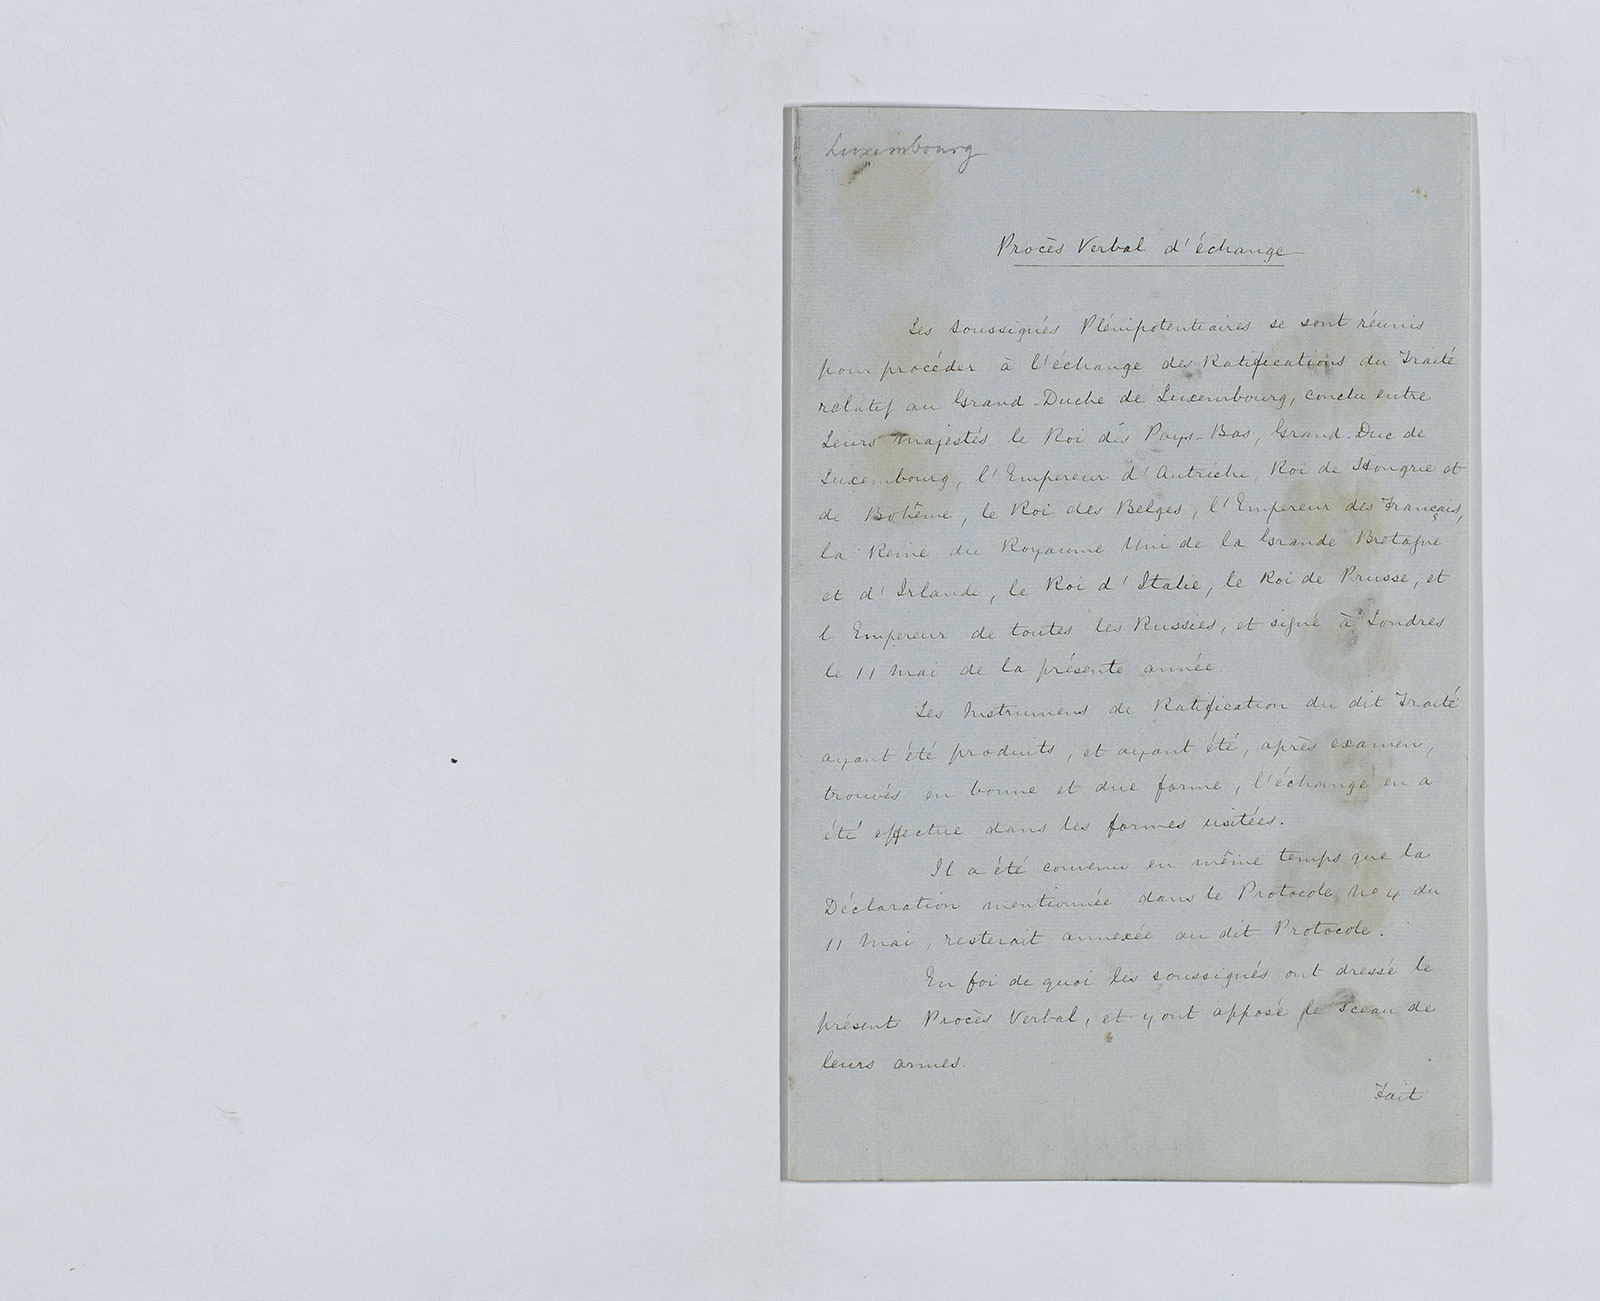 Luxembourg
Procès Verbal d'échange
Les soussignés Plénipotentiaires se sont réunis
pour procéder à l'échange des Ratifications du Traité
relatif au Grand-Duche de Luxembourg, conclu entre
Leurs Majestés le Roi des Pays-Bas, Grand-Duc de
Luxembourg, l'Empereur d'Autriche, Roi de Hongrie et
de Bohême, le Roi des Belges, l'Empereur des Français,
la Reine du Royaume Uni de la Grande Bretagne
et d'Irlande, le Roi d'Italie, le Roi de Prusse, et
l'Empereur de toutes les Russies, et signé à Londres
le 11 Mai de la présente année.
Les Instrumens de Ratification du dit Traité
ayant été produits, et ayant été, après examen,
trouvés en bonne et due forme, l'échange en a
été effectué dans les formes usitées.
Il a été convenu en même temps que la
Déclaration mentionnée dans le Protocole No 4 du
11 Mai, resterait annexée au dit Protocole.
En foi de quoi les soussignés ont dressé le
présent Procès Verbal, et y ont apposé le sceau de
leurs armes.
Fait